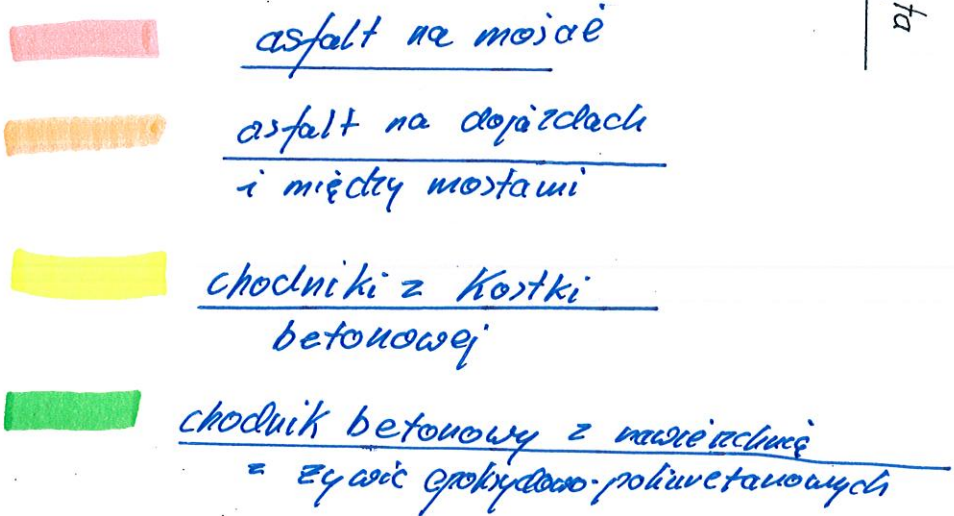 asfalt na moście
asfalt na dojazdach
i między mostami
chodniki z kostki
betonowej
chodnik betonowy z nawierzchnią
z żywic epoksydowo-poliuretanowych
ta